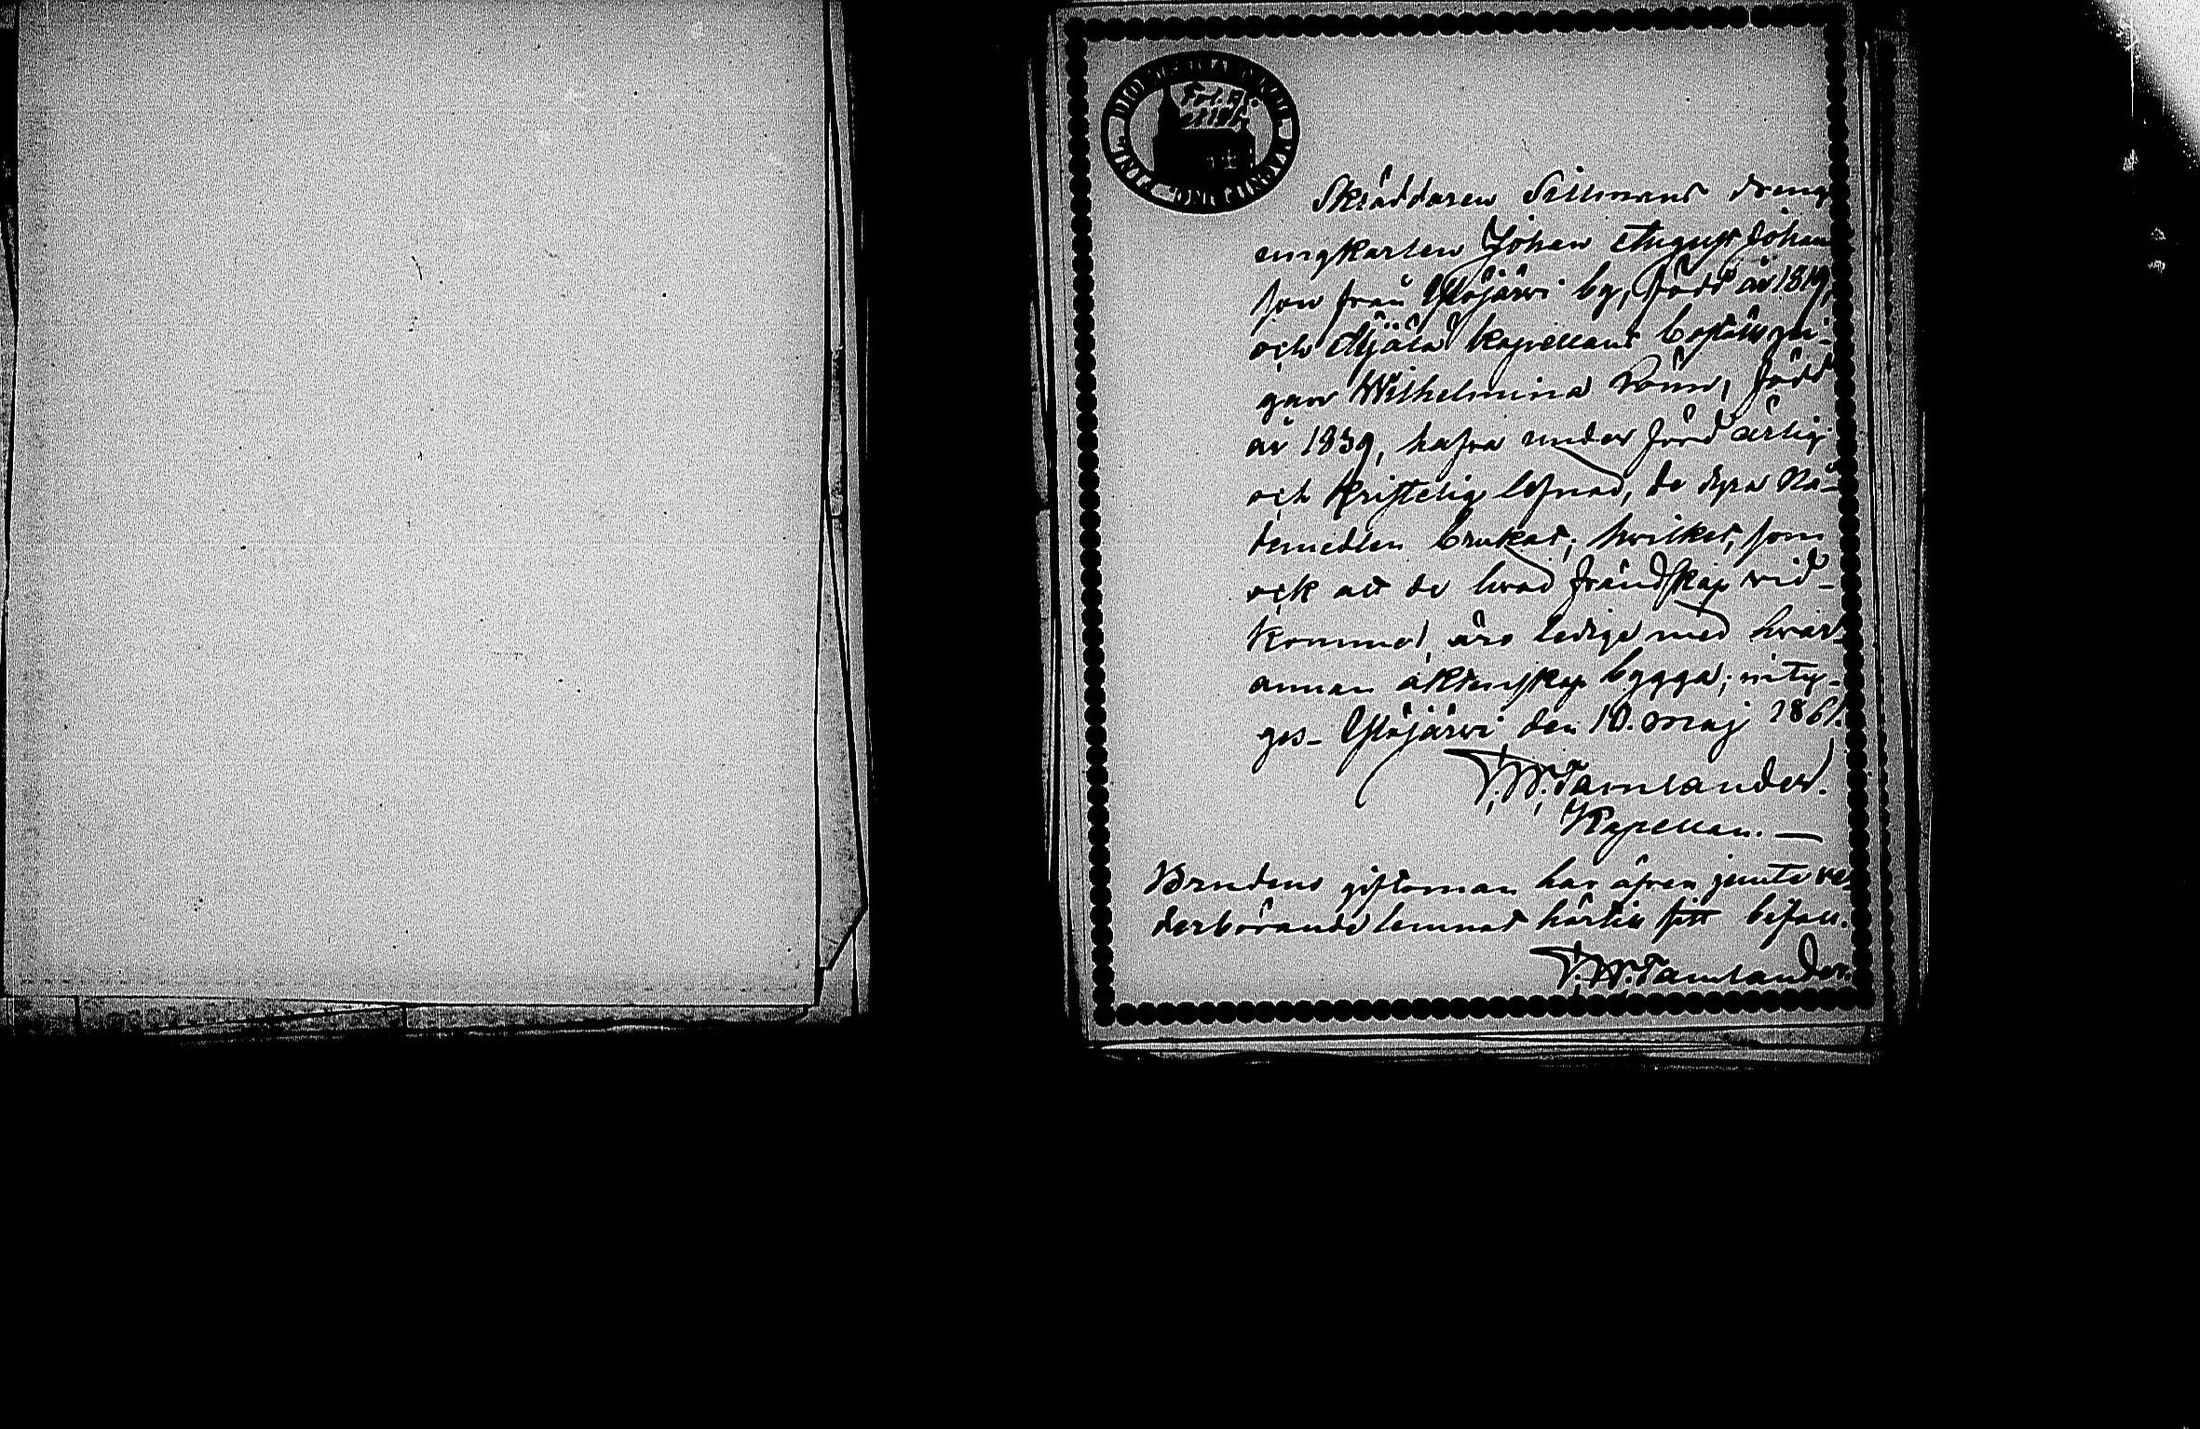 Skräddaren Sillmans dreng
ungkarlen Johan August Johan
son från Ylöjärvi by, född år 1819,
och Mjälä Kapellans
gan Wilhelmina född
år 1839, hafva under förd ärlig
och kristelig lefnad, de dyra Nå-
demedlen brukat; hvilket, som
ock att de hvad frändskap wid-
kommer, äro ledige med hvar-
annan äktenskap bygga; inty-
gas. Ylöjärwi den 10. Maj 1861.
F. W. Tamlander.
Kapellan. —
Brudens giftoman har äfven jemte ve-
derbörande lemnat härtill sitt bifall.
F. W. Tamlander.